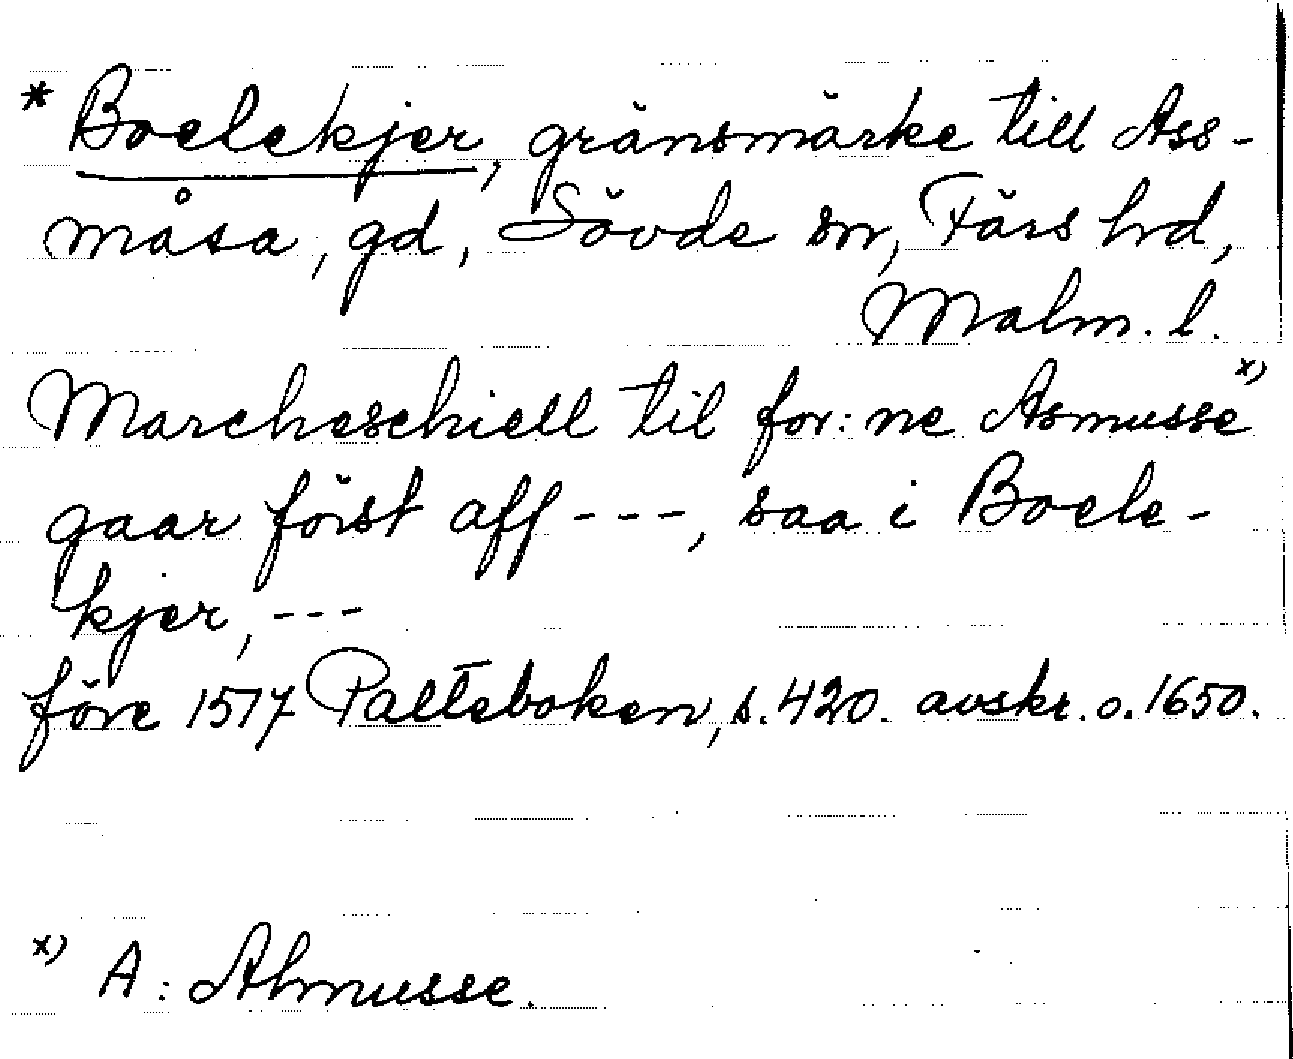 * Boelekjer, gränsmärke till Ass-
måsa, gd, Sövde sn, Färs hrd,
Malm. l.
Marcheschiell til for:ne Asmusse x)
gaar först aff ---, saa i Boele-
kjer, ---
före 1517 Palteboken, s. 420. avskr. o. 1650.
x) A: Ahmusse.